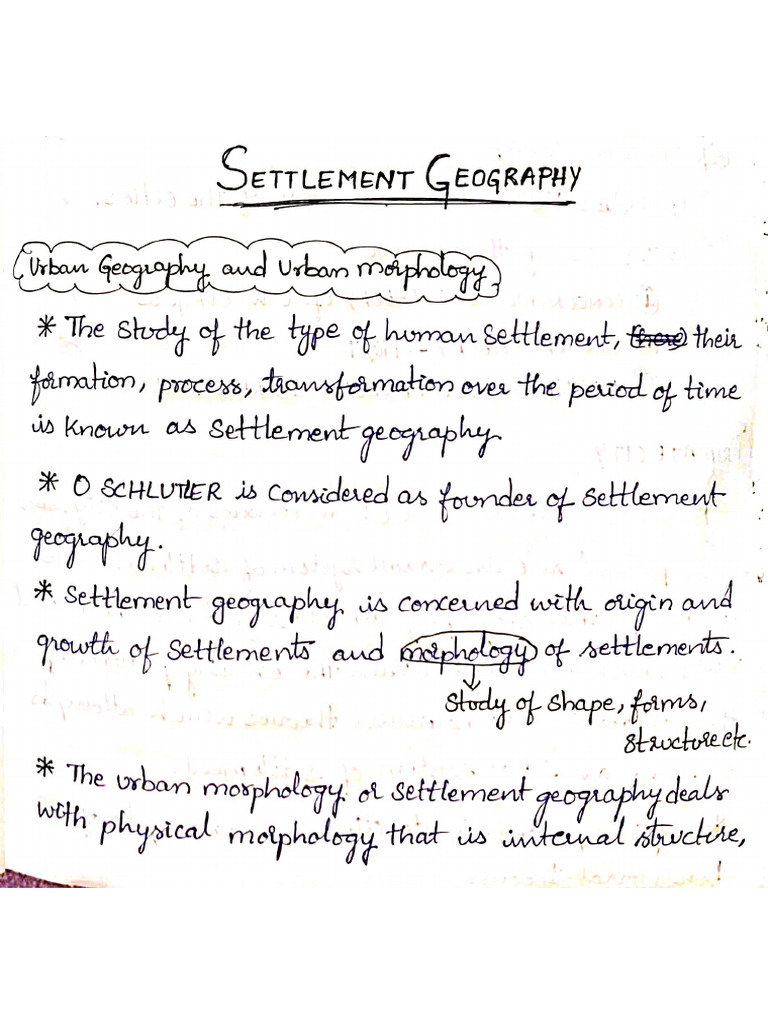 SETTLEMENT GEOGRAPHY
Urban Geography and Urban morphology
* The Study of the type of human settlement, (there) their
formation, process, transformation over the period of time
is known as settlement geography.
* O SCHLUTLER is considered as founder of settlement
geography.
* Settlement geography is concerned with origin and
growth of settlements and morphology of settlements.
Study of shape, forms,
structure etc.
* The urban morphology or settlement geography deals
with physical morphology that is internal structure,